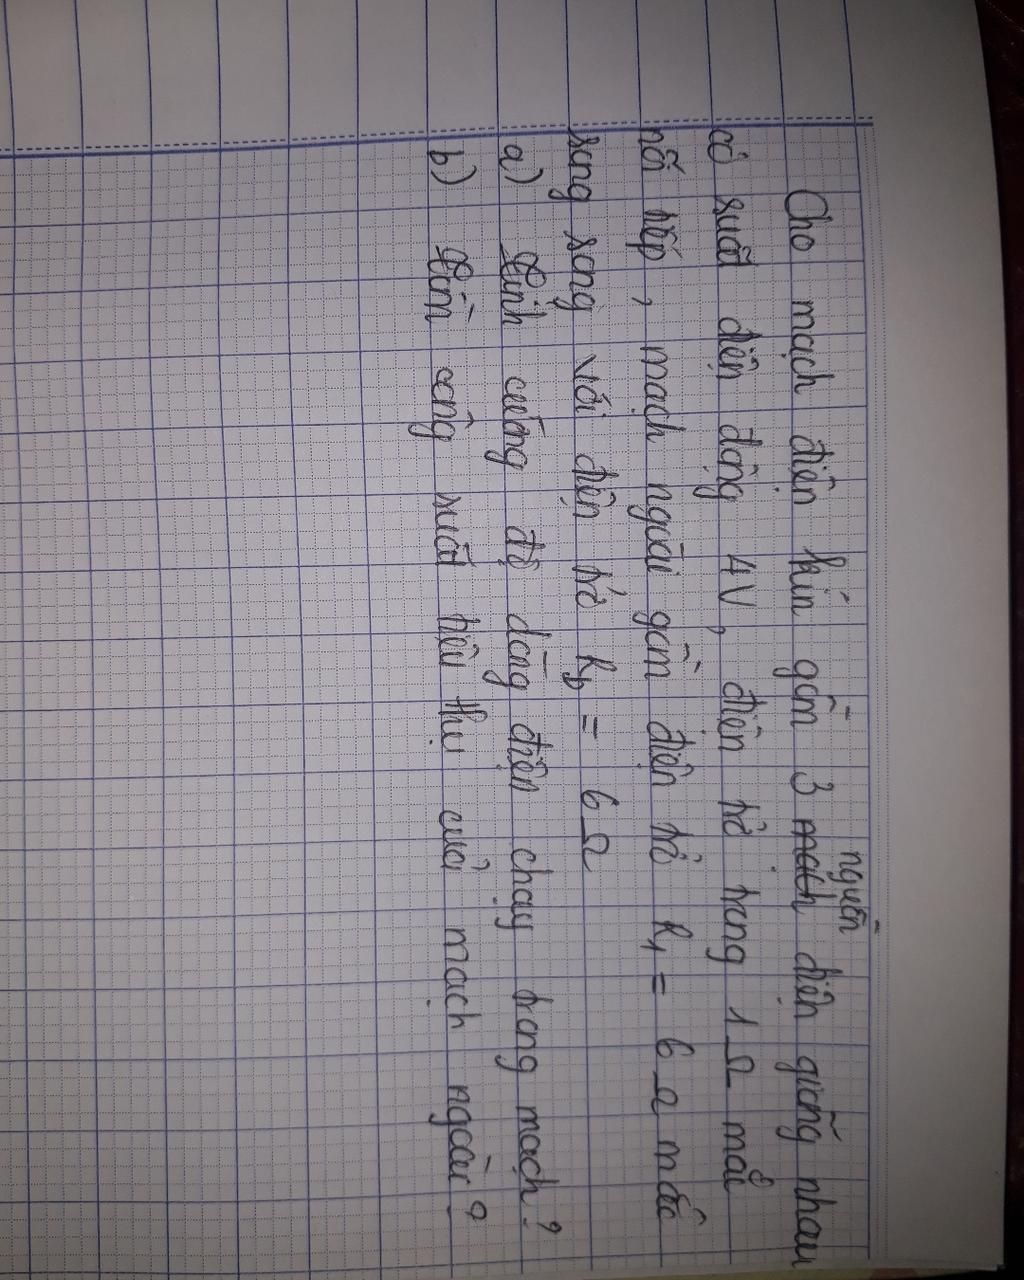 nguồn
Cho mạch điện kín gồm 3 mạch điện giống nhau
có suất điện động 4V, điện trở trong 1Ω mắc
nối tiếp, mạch ngoài gồm điện trở R1 = 6Ω mắc
song song với điện trở Rb = 6Ω
a) Tính cường độ dòng điện chạy trong mạch?
b) Tìm công suất tiêu thụ của mạch ngoài?